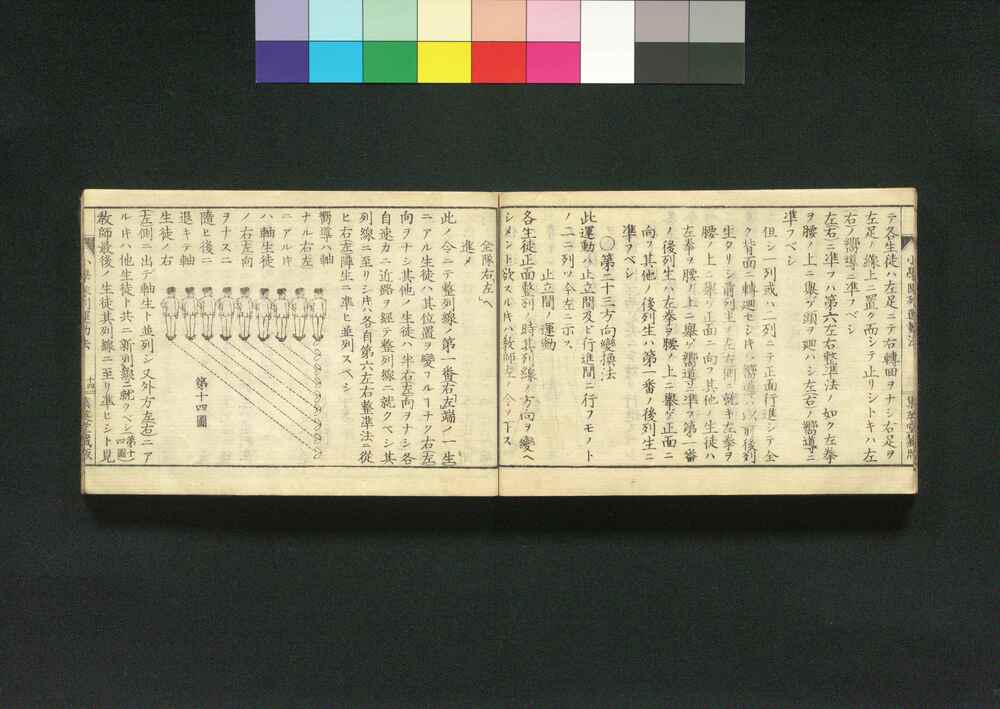 テ各生徒ハ左足ニテ右轉回ヲナシ右足ヲ
左足ノ線上ニ置ク而シテ止リシトキハ左
右ノ嚮導ニ準フベシ
左右ニ準フハ第六左右整準法ノ如ク左拳
ヲ腰ノ上ニ擧ゲ頭ヲ廻ハシ左右ノ嚮導ニ
準フベシ
但シ一列或ハ二列ニテ正面行進シテ全
ク背面ニ轉廻セシキハ嚮導ハ以前後列
生タリシ前列生ノ左右側ニ就キ左拳ヲ
腰ノ上ニ擧ゲ正面ニ向フ其他ノ生徒ハ
左拳ヲ腰ノ上ニ擧ゲ嚮導ニ準フ第一番
ノ後列生ハ左拳ヲ腰ノ上ニ擧ゲ正面ニ
向フ其他ノ後列生ハ第一番ノ後列生ニ
準フベシ
〇第二十三方向變換法
此運動ハ止立間及ビ行進間ニ行フモノト
ノ二ニ列ツ今左ニ示ス
止立間ノ運動
各生徒正面整列ノ時其列線ノ方向ヲ變ヘ
シメント欲スルキハ教師左ノ令ヲ下ス
全隊右「左」ヘ
進メ
此ノ令ニテ整列線ノ第一番右「左」端ノ一生
ニアル生徒ハ其位置ヲ變フルーナク右左
向ヲナシ其他ノ生徒ハ半右左向ヲナシ各
自速カニ近路ヲ經テ整列線ニ就クベシ其
列線ニ至リシキハ各自第六左右整準法ニ從
ヒ右左隣生ニ準ヒ並列スベシ
嚮導ハ軸
ナル右左
ニアルキ
ハ軸生徒
ノ右左向
ヲナスニ
隨ヒ後ニ
退キテ軸
生徒ノ右
左側ニ出テ軸生ト並列シ又外方左右ニア
ルキハ他生徒ト共ニ新列線ニ就クベシ(第十四圖)
教師最後ノ生徒其列線ニ至リ準ヒシト見
第十四圖
十四